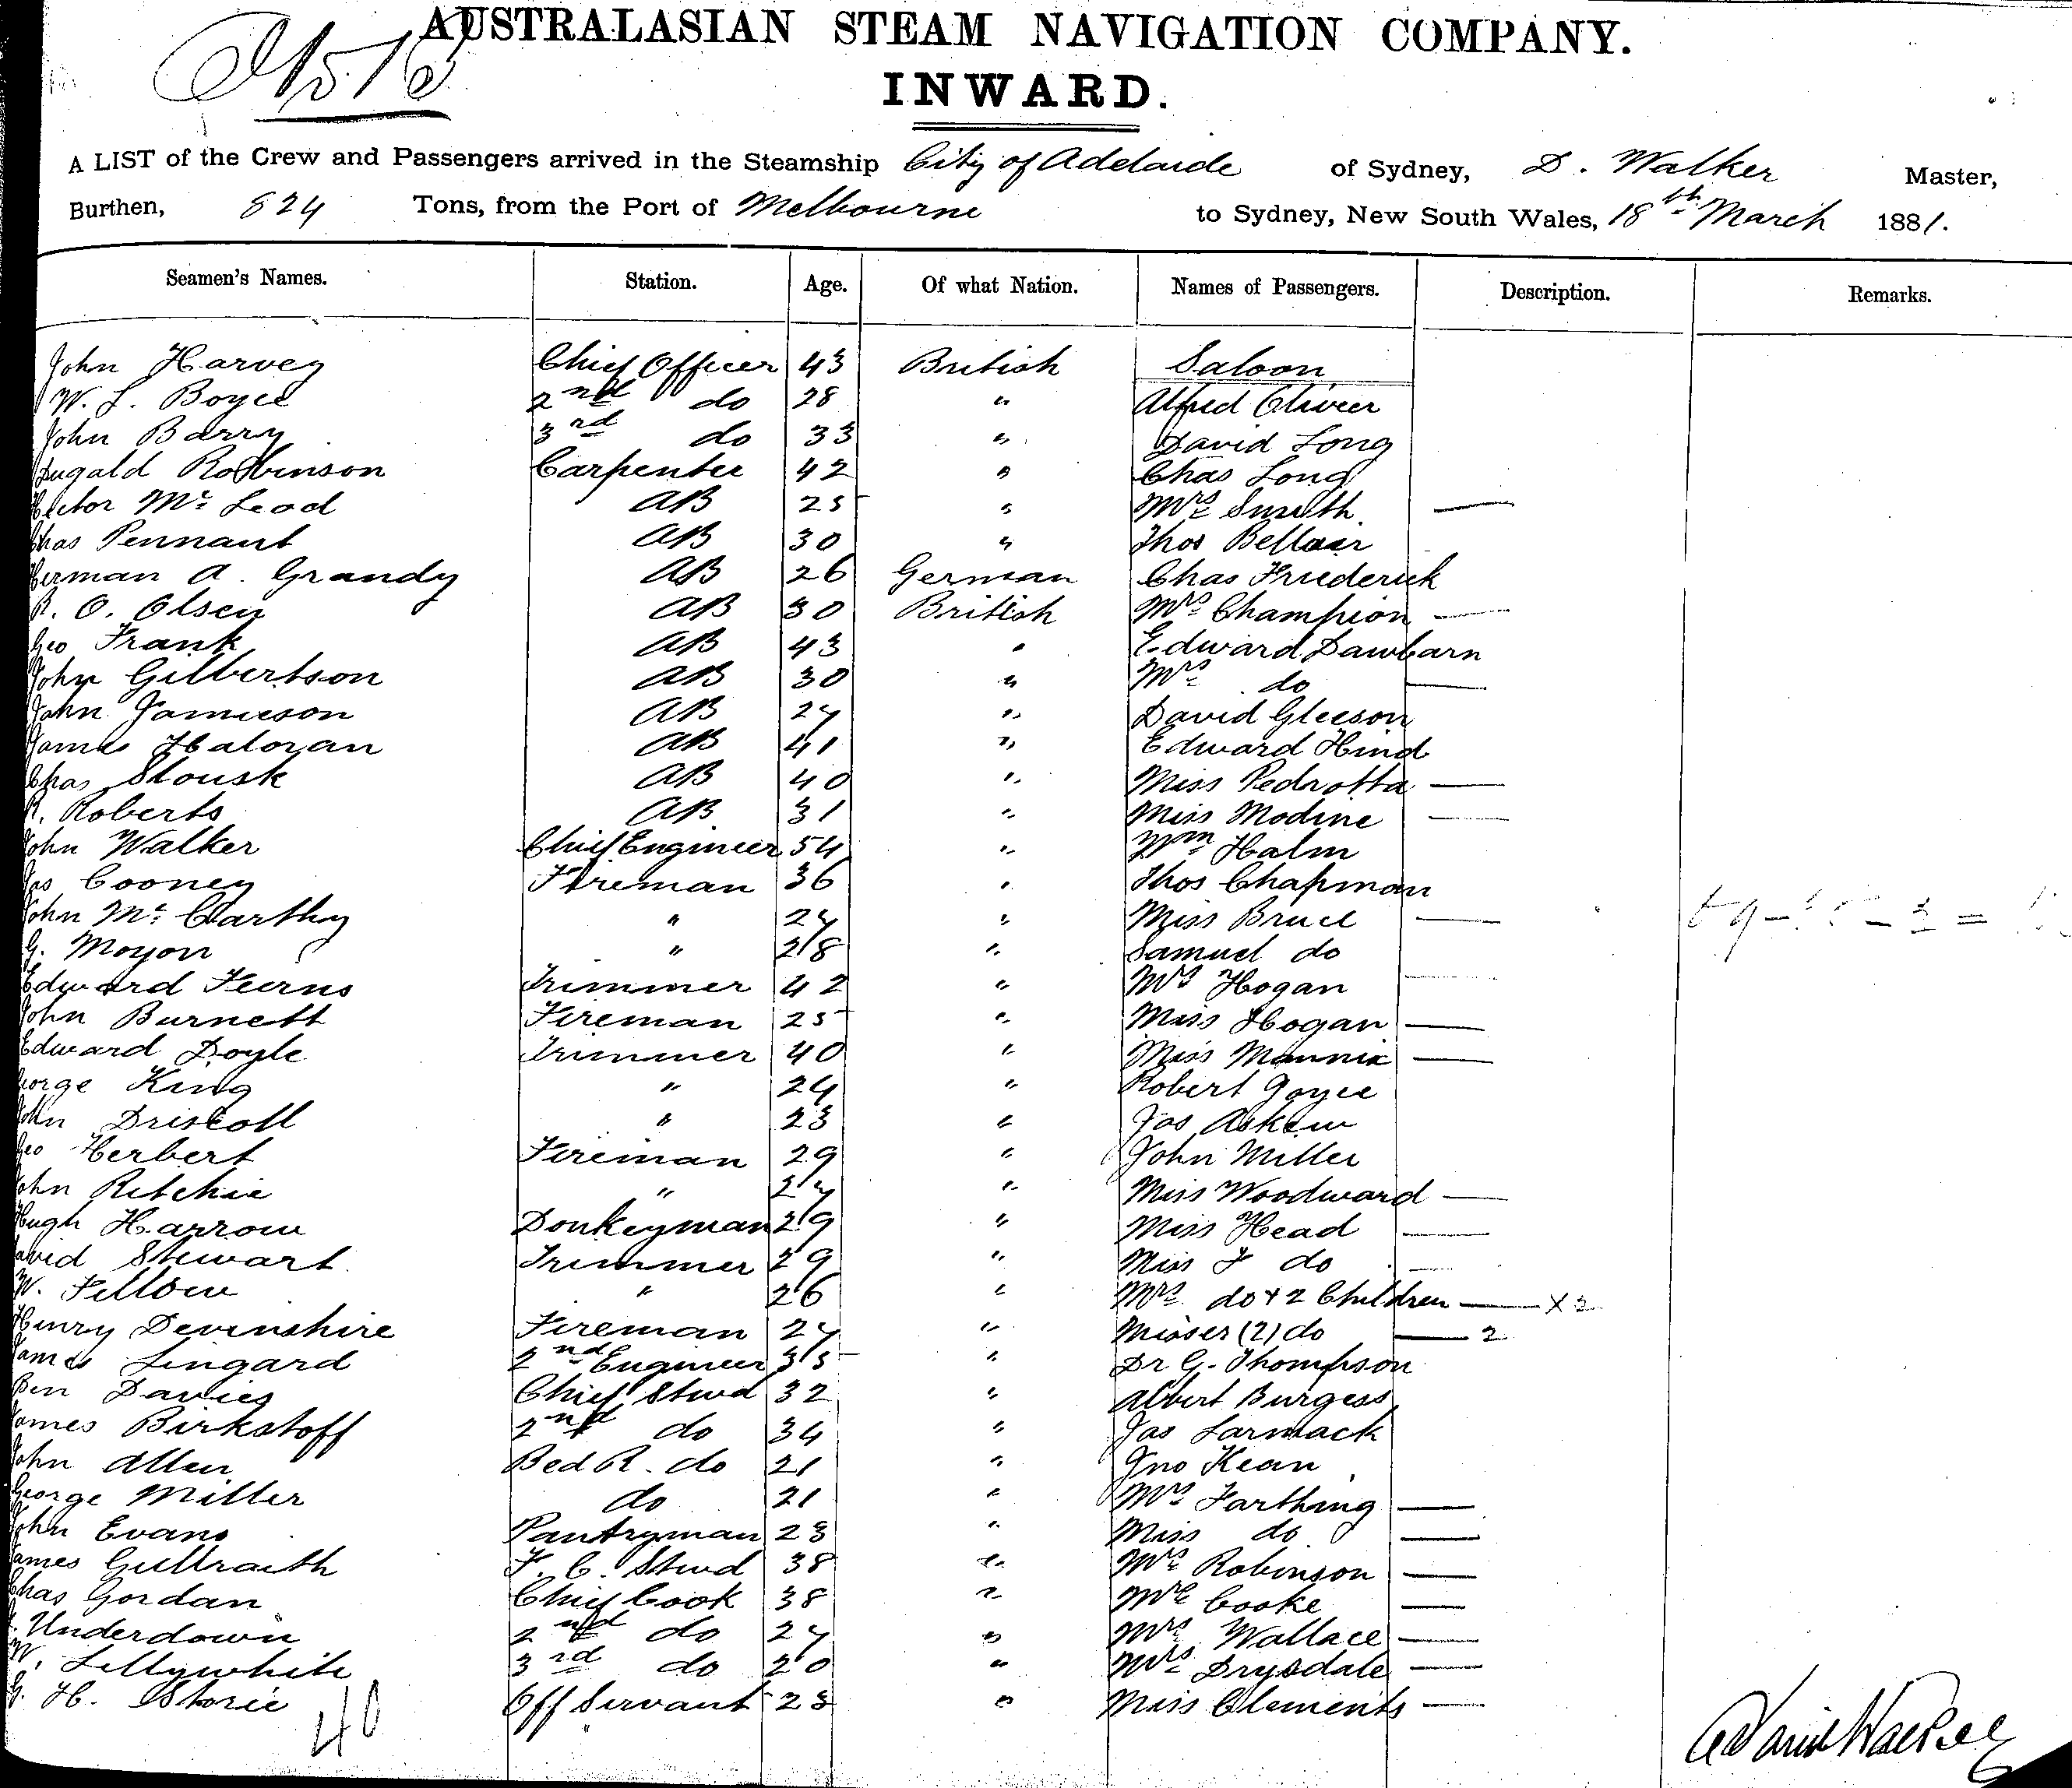 No. 13
AUSTRALASIAN STEAM NAVIGATION COMPANY.
INWARD.
A LIST of the Crew and Passengers arrived in the Steamship City of Adelaide of Sydney, D. Walker Master,
Burthen, 824 Tons, from the Port of Melbourne to Sydney, New South Wales, 18th March 1881.
Seamen's Names. Station. Age. Of what Nation. Names of Passengers. Description. Remarks.
John Harvey Chief Officer 43 British Saloon
W. L. Boyce 2nd do 28 " Alfred Olivier
John Barry 3rd do 33 " David Long
Dugald Robinson Carpenter 42 " Chas Long
Hector Mc Leod AB 25 " Mrs Smith —
Chas Pennant AB 30 " Thos Bellair
Herman A. Grandy AB 26 German Chas Friederick
R. O. Olsen AB 30 British Mrs Champion —
Geo Frank AB 43 " Edward Dawbarn
John Gilbertson AB 30 " Mrs do —
John Jamieson AB 27 " David Gleeson
James Haloran AB 41 " Edward Hind
Chas Slousk AB 40 " Miss Pedrotta —
R. Roberts AB 31 " Miss Modine —
John Walker Chief Engineer 54 " Wm Halm
Jas Cooney Fireman 36 " Thos Chapman
John Mc Carthy " 27 " Miss Bruce —
G. Moyon " 28 " Samuel do
Edward Feerns Trimmer 42 " Mrs Hogan —
John Burnett Fireman 25 " Miss Hogan —
Edward Doyle Trimmer 40 " Miss Mannix —
George King " 24 " Robert Joyce
John Driscoll " 23 " Jas Askew
Geo Herbert Fireman 29 " John Miller
John Ritchie " 27 " Miss Woodward —
Hugh Harrow Donkeyman 29 " Miss Head —
David Stewart Trimmer 29 " Miss F do —
W. Fellow " 26 " Mrs do & 2 Children — X 2
Henry Devinshire Fireman 27 " Misses (2) do — 2
James Lingard 2nd Engineer 35 " Dr G. Thompson
Ben Davies Chief Stwd 32 " Albert Burgess
James Birkstoff 2nd do 34 " Jas Larmack
John Allen Bed R. do 21 " Jno Kean
George Miller do 21 " Mrs Farthing —
John Evans Pantryman 23 " Miss do —
James Gullraith F. C. Stwd 38 " Mrs Robinson —
Chas Gordan Chief Cook 38 " Mrs Cooke —
Underdown 2nd do 27 " Mrs Wallace —
W. Lillywhite 3rd do 20 " Mrs Drysdale —
G. H. Storie Off Servant 23 " Miss Clements —
40
David Walker